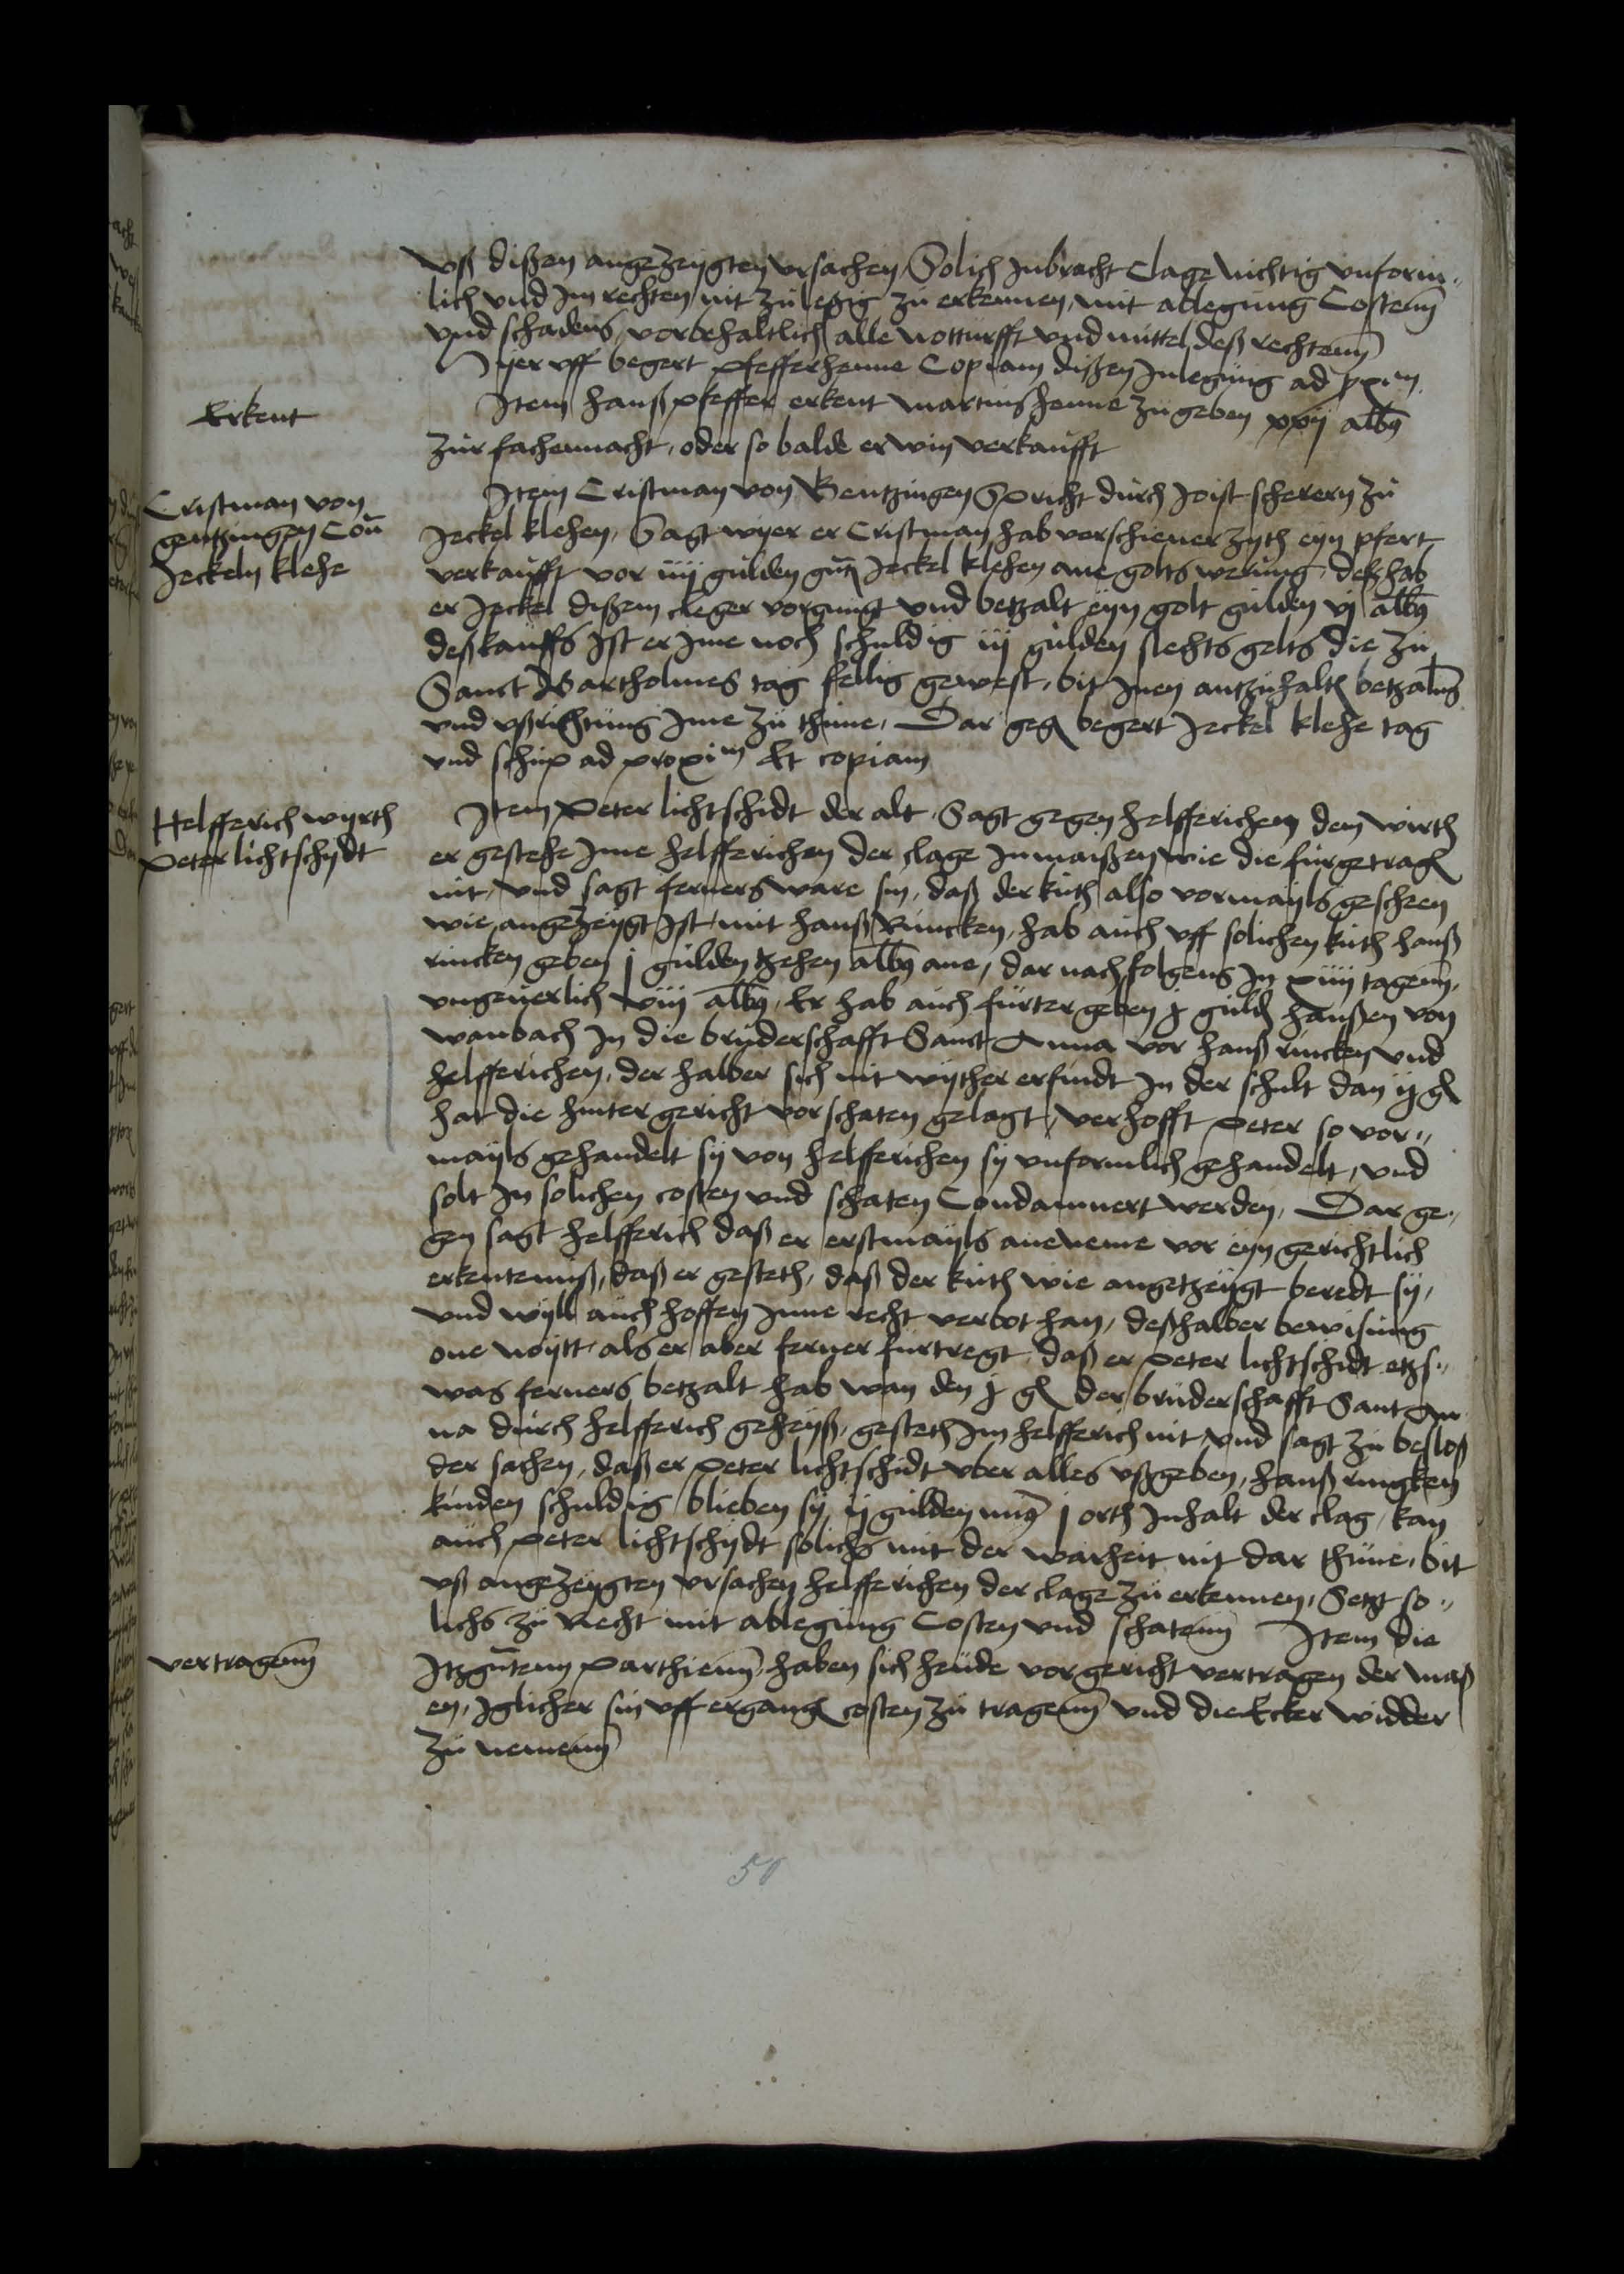 uß dißen angezeygten ursachen Solich Inbracht Clage Nichtig unform„
lich und Im rechten nit zulesig zu erkennen, mit ablegung Costenn
und schadens, vorbehaltlich alle notturfft und mittel deß rechtenn
Hyer uff begert pfefferhenne Copiam dißen Inlegung ad pxm.
Erkent
Item hanß pfeffer erkent martinshenne zu geben xxij albꝯ
zur fachennacht, oder so balde er win verkaufft
Cristman von
gentzingen Con̄
Jeckeln klehe
Item Cristman von Gentzingen Spricht durch Joist scherern zu
Jeckel klehen, Sagt wyer er Cristman hab verschiener zyth eyn pfert
verkaufft vor iiij gulden gn̄ Jeckel klehen ane golts werung, deß hab
er Jeckel dißem cleger vorgnugt und betzalt eyn golt gulden vj albꝯ
deß kauffs Ist er Ime noch schuldig iij gulden slechts gelts die zu
Sanct Bartholmes tag fellig gewest, bit Inen antzuhaltn betzalung
und ußrichtung Ime zu thune, Dar gegn begert Jeckel klehe tag
und schup ad proxim Et copiam
Helfferich wyrth
Peter lichtschydt
Item Peter lichtschidt der alt Sagt gegen helfferichen den wirth
er gestehe Ime helfferichen der clage Inmaißen wie die furgetragn
nit, und sagt ferners ware sin, daß der kuth also vormayls gescheen
wie angezeygt Ist, mit hanß Rincken, hab auch uff solichen kuth hanß
rincken geben j gulden tzehen albꝯ ane, dar nach folgens In xiiij tagenn,
ungeuerlich viij albꝯ, Er hab auch furter geben j guldn hanßen von
wanbach In die bruderschafft Sanct Anna vor hanß rincken und
helfferichen, der halber sich nit wyther erfindt In der schult dan ij gl
hat die hinter gericht vor schaten gelagt, verhofft Peter so vor„
mayls gehandelt sy von helfferichen sy unformlich gehandelt, und
solt In solichen costen und schaten Condamnert werden, Dar ge„
gen sagt helfferich daß er erstmayls aneneme vor eyn gerichtlich
erkentenniß, daß er gesteth, daß der kuth wie angetzeygt beredt sy,
und wyll auch hoffen Inne recht verbot han, deßhalber bewisung
one noytt, als er aber ferner furtregt, daß er Peter lichtschidt etzs„
was ferners betzalt hab wan den j gl der bruderschafft Sant An
na durch helfferich geheyß, gesteth Im helfferich nit, und sagt zu besloß
der sachen, daß er Peter lichtschidt uber alles ußgeben, hanß ringken
kinden schuldig blieben sy ij gulden minꝯ j orth Inhalt der clag, kan
auch Peter lichtschydt solichs mit der warheit nit dar thune, bit
uß angezeygten ursachen helfferichen der clage zu erkennen, Setzt so„
lichs zu Recht mit ablegung Costen und schatenn Item die
vertragenn
Itzgn̄tenn Parthienn, haben sich heude vor gericht vertragen der maß
en, Iglicher sin uff ergangn costen zu tragenn und die Ecker widder
zu nemenn
50